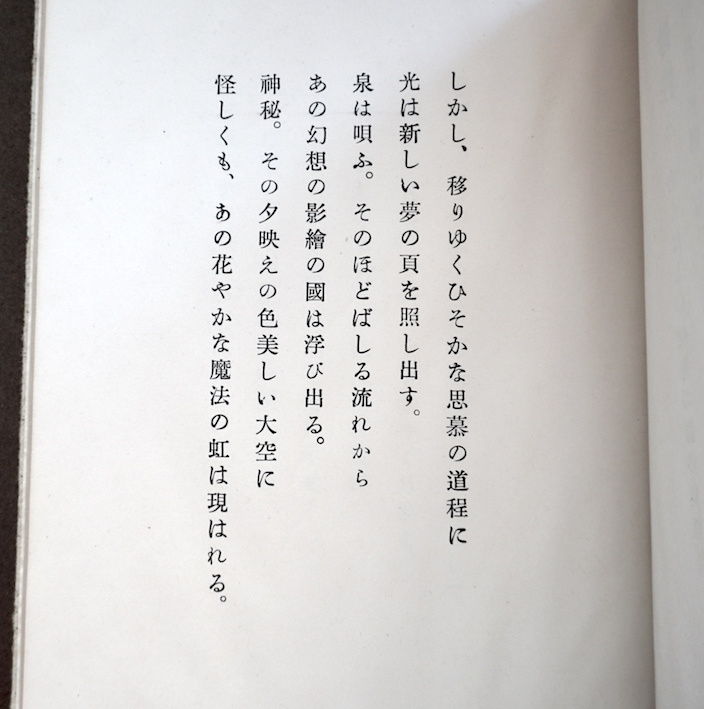 しかし、移りゆくひそかな思慕の道程に
光は新しい夢の頁を照し出す。
泉は唄ふ。そのほどばしる流れから
あの幻想の影繪の國は浮び出る。
神秘。その夕映えの色美しい大空に
怪しくも、あの花やかな魔法の虹は現はれる。